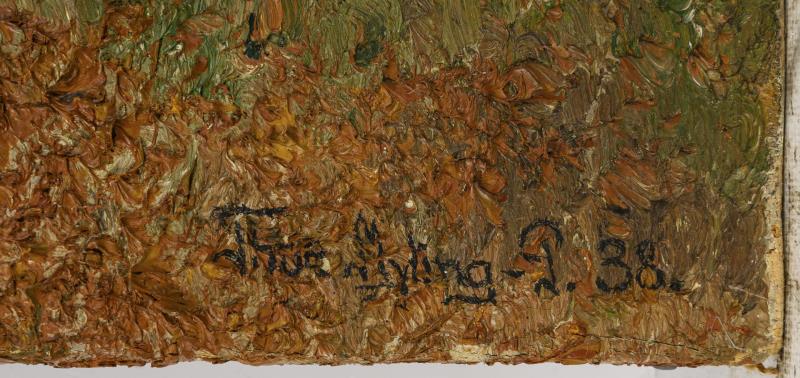 Thue Myling-P. 38.